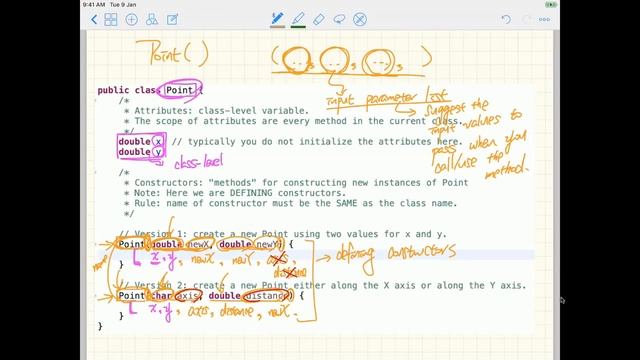 9:41 AM Tue 9 Jan
Point()
( ... , ... , ... , )
input parameter list
suggest the
input values to
pass when you
call/use the
method.
public class Point {
/*
* Attributes: class-level variable.
* The scope of attributes are every method in the current class.
*/
double x // typically you do not initialize the attributes here.
double y
class-level
/*
* Constructors: "methods" for constructing new instances of Point
* Note: Here we are DEFINING constructors.
* Rule: name of constructor must be the SAME as the class name.
*/
// Version 1: create a new Point using two values for x and y.
Point(double newX, double newY) {
x, y, newX, newY, axis,
distance
}
defining constructors
name
// Version 2: create a new Point either along the X axis or along the Y axis.
Point(char axis, double distance) {
x, y, axis, distance, newX.
}
}